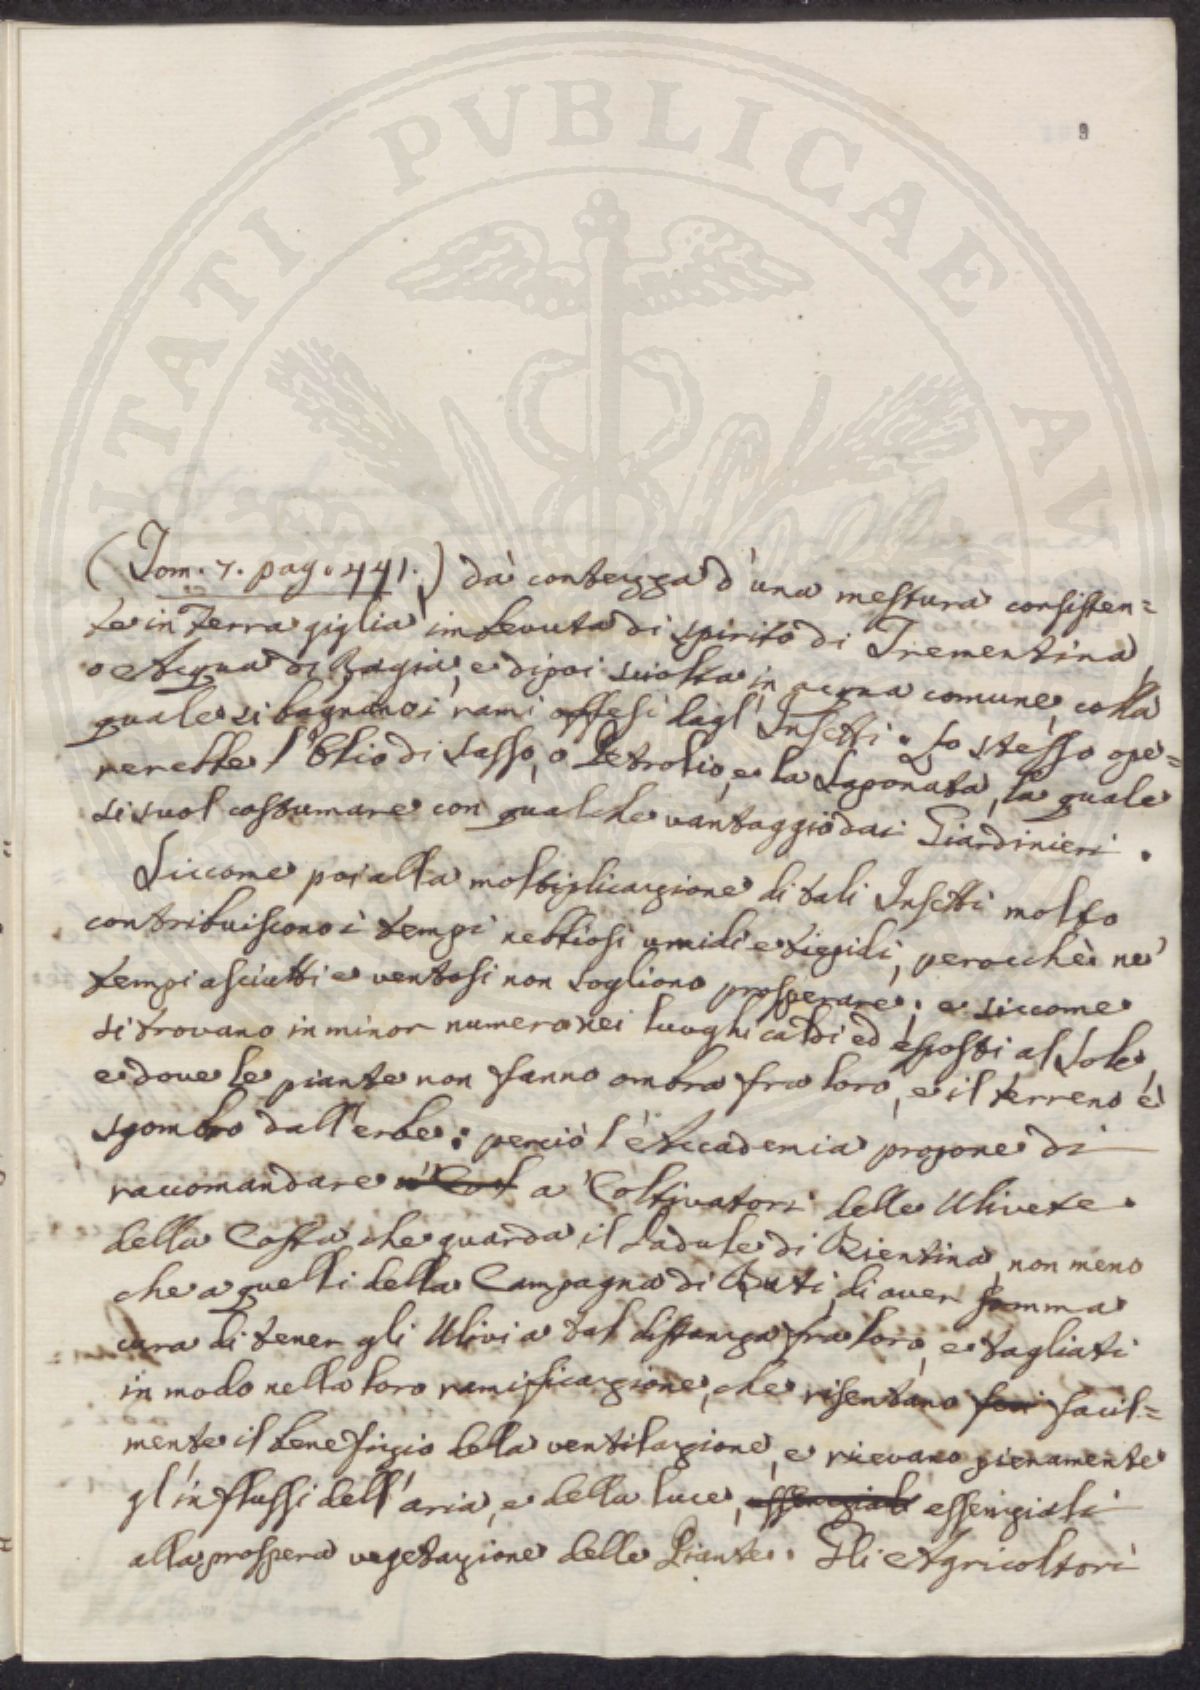 PROSPERITATI PUBLICAE AUGENDAE
9
(Tom. 7. pag. 441.) dà contezza d'una mestura consisten=
te in Terra giglia imbevuta di spirito di Trementina,
o Acqua di Ragia, e dipoi sciolta in acqua comune, colla
quale si bagnano i rami offesi dagl'Insetti. Lo stesso ope=
rerebbe l'Olio di Sasso, o Petrolio, e la Saponata, la quale
si suol costumare con qualche vantaggio dai Giardinieri.
Siccome poi alla moltiplicazione di tali Insetti molto
contribuiscono i tempi nebbiosi umidi e tiepidi, perocchè ne'
tempi asciutti e ventosi non sogliono prosperare; e siccome
si trovano in minor numero nei luoghi caldi ed esposti al Sole,
e dove le piante non fanno ombra fra loro, e il terreno è
sgombro dall'erbe: perciò l'Accademia propone di
raccomandare a' Coltivatori delle Ulivete
della Costa che guarda il Padule di Bientina, non meno
che a quelli della Campagna di Buti, di aver somma
cura di tener gli Ulivi a tal distanza fra loro, e tagliati
in modo nella loro ramificazione, che risentano facil=
mente il benefizio della ventilazione, e ricevano pienamente
gl'influssi dell'aria, e della luce, essenziali
alla prospera vegetazione delle Piante. Gli Agricoltori